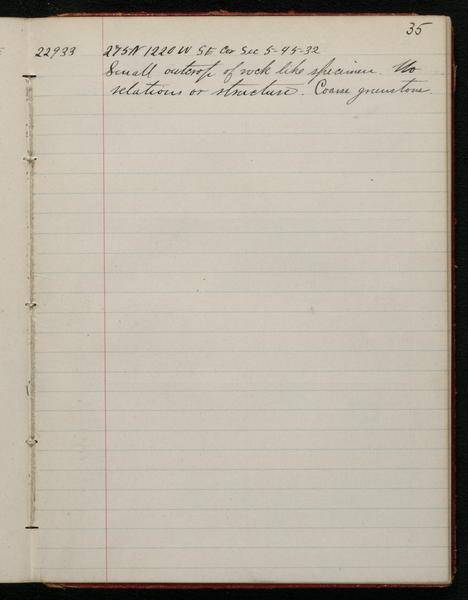 35
22933 275N 1220 W SE Cor Sec 5-45-32
Small outcrop of rock like specimen. No
relations or structure. Coarse greenstone